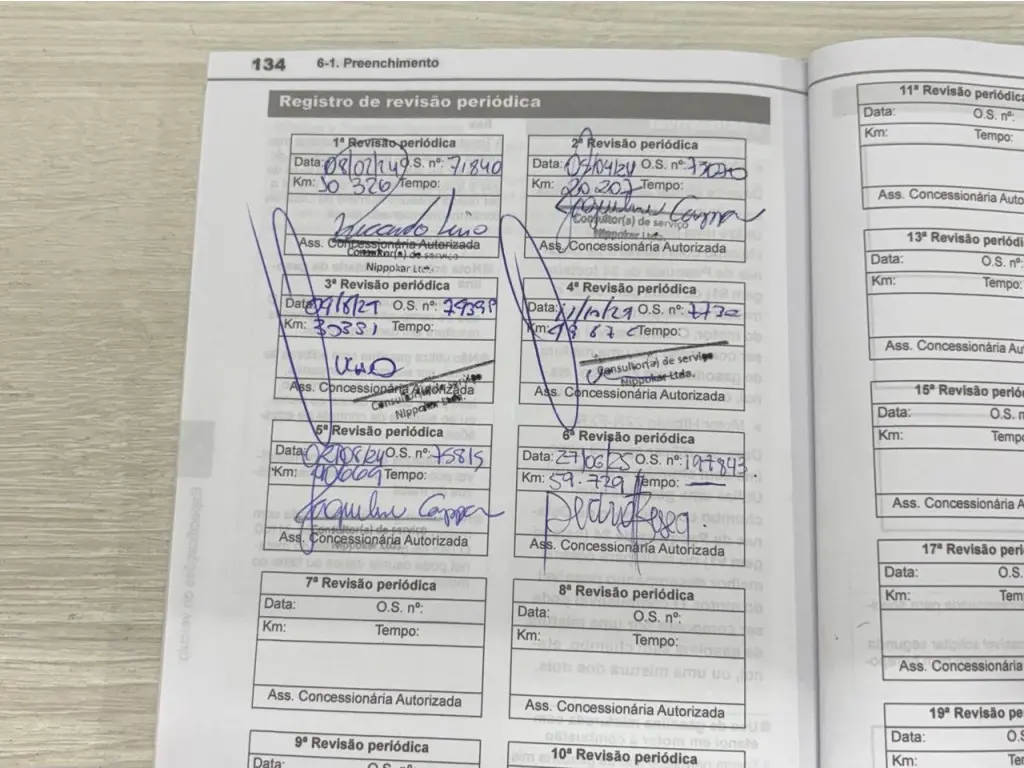 134 6-1. Preenchimento
Registro de revisão periódica
1ª Revisão periódica
Data: 08/02/24 O.S. nº: 71840
Km: 10 326 Tempo:
Ricardo Lino
Ass. Concessionária Autorizada
Consultor(a) de serviço
Nippokar Ltda.
2ª Revisão periódica
Data: 09/04/24 O.S. nº:
Km: 20.207 Tempo:
Jaqueline
Consultor(a) de serviço
Nippokar Ltda.
Ass. Concessionária Autorizada
3ª Revisão periódica
Data: O.S. nº:
Km: 30331 Tempo:
Ass. Concessionária Autorizada
Consultor(a) de serviço
Nippokar Ltda.
4ª Revisão periódica
Data: O.S. nº:
Km: Tempo:
Consultor(a) de serviço
Nippokar Ltda.
Ass. Concessionária Autorizada
5ª Revisão periódica
Data: O.S. nº: 75815
Km: 40669 Tempo:
Jaqueline
Consultor(a) de serviço
Ass. Concessionária Autorizada
Nippokar Ltda.
6ª Revisão periódica
Data: 27/05/25 O.S. nº: 197843
Km: 59.729 Tempo:
Ass. Concessionária Autorizada
7ª Revisão periódica
Data: O.S. nº:
Km: Tempo:
Ass. Concessionária Autorizada
8ª Revisão periódica
Data: O.S. nº:
Km: Tempo:
Ass. Concessionária Autorizada
9ª Revisão periódica
Data: O.S. nº:
10ª Revisão periódica
11ª Revisão periódica
Data: O.S. nº:
Km: Tempo:
Ass. Concessionária
13ª Revisão
Data: O.S. nº:
Km: Tempo:
Ass. Concessionária
15ª Revisão
Data: O.S.
Km:
Ass. Concessionária
17ª Revisão
Data: O.S.
Km:
Ass. Concessionária
19ª Revisão
Data: O.S.
Km: